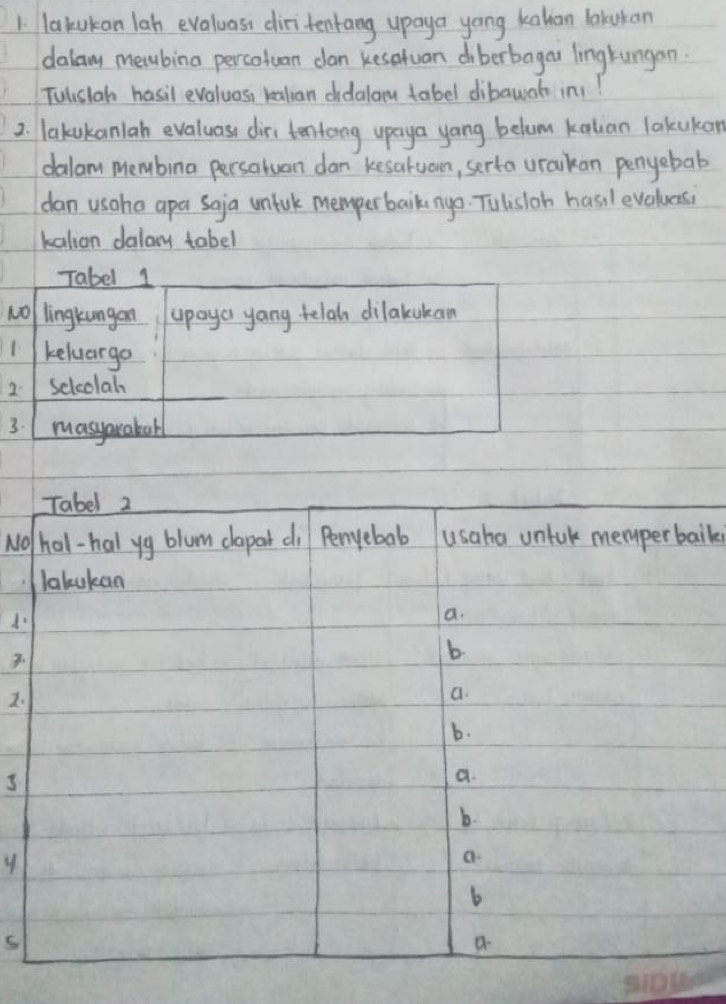 1. lakukan lah evaluasi diri tentang upaya yang kalian lakukan
dalam membina percatuan dan kesatuan diberbagai lingkungan.
Tulislah hasil evaluasi kalian didalam tabel dibawah ini!
2. lakukanlah evaluasi diri tentang upaya yang belum kalian lakukan
dalam membina persatuan dan kesatuan, serta uraikan penyebab
dan usaha apa saja untuk memperbaikinya. Tulislah hasil evaluasi
kalian dalam tabel
Tabel 1
No lingkungan upaya yang telah dilakukan
1 keluarga
2. sekolah
3. masyarakat
Tabel 2
No hal-hal yg blum dapat di Penyebab usaha untuk memperbaiki
lakukan
1. a.
2. b.
2. a.
b.
3 a.
b.
4 a.
b
5 a.
SIDU